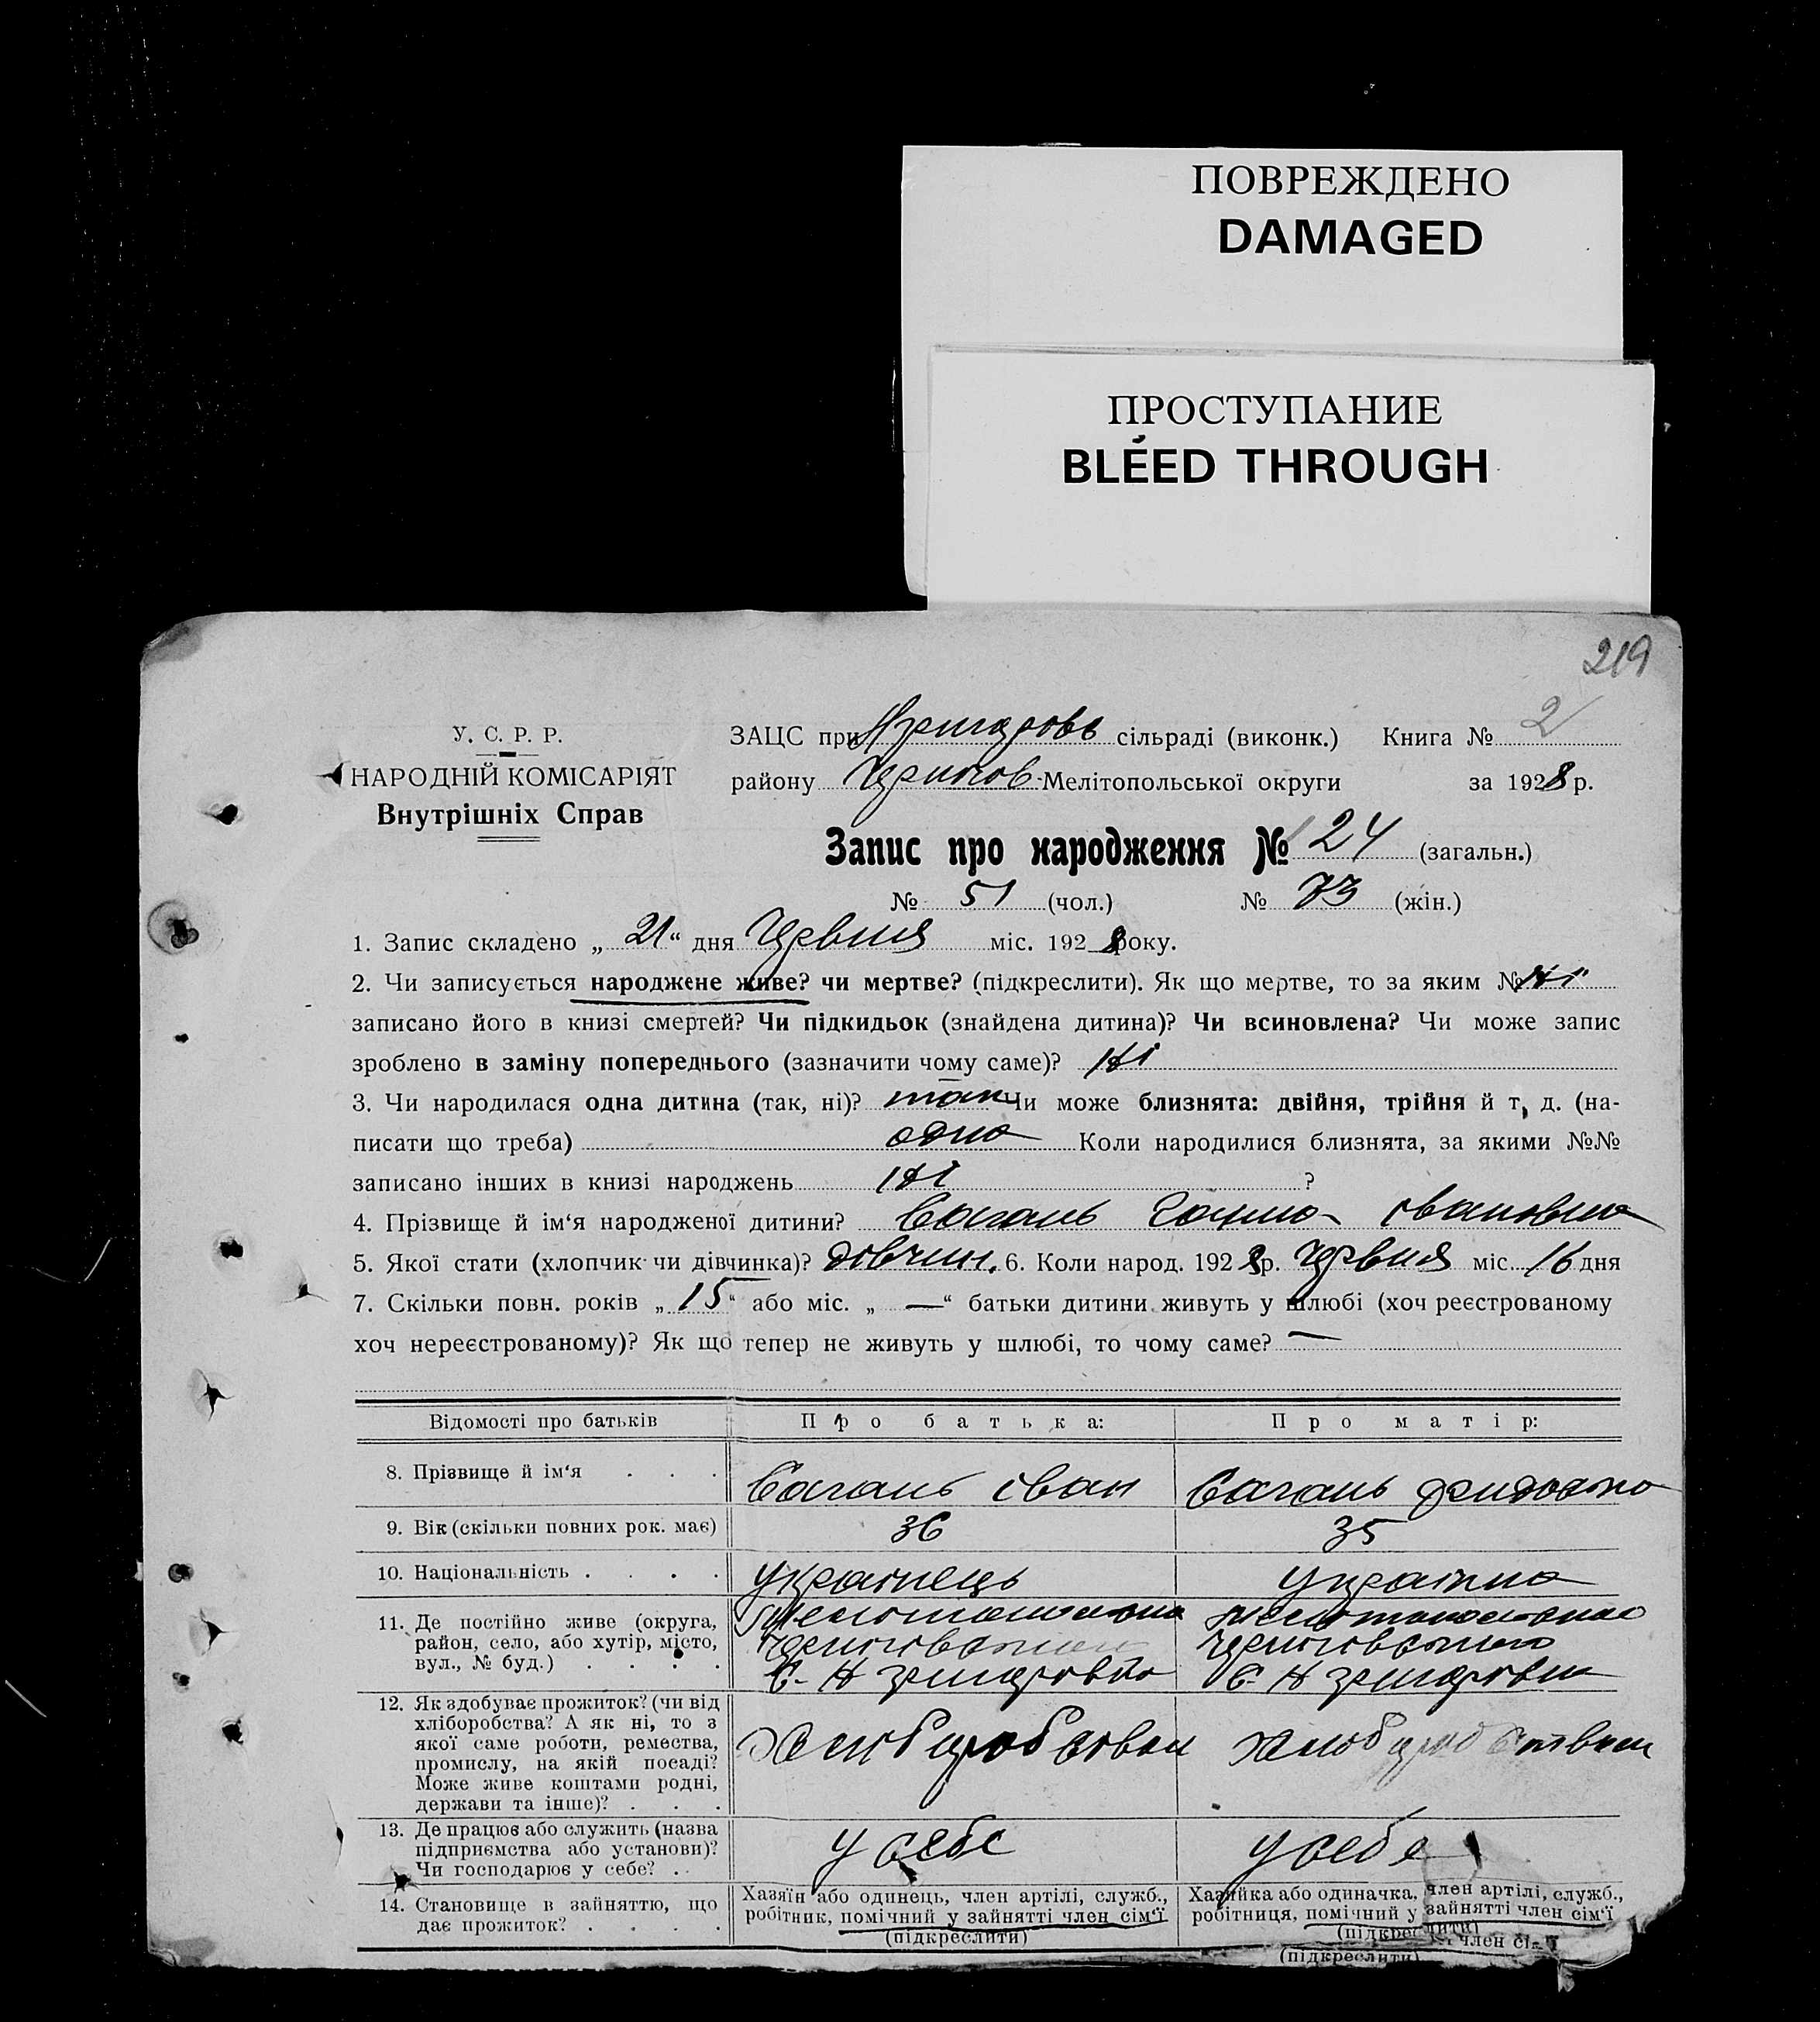 ПОВРЕЖДЕНО
DAMAGED
ПРОСТУПАНИЕ
BLEED THROUGH
219
У. С. Р. Р.
НАРОДНІЙ КОМІСАРІЯТ
Внутрішніх Справ
ЗАЦС при сільраді (виконк.) Книга № 2
району Мелітопольської округи за 1928 р.
Запис про народження № 124 (загальн.)
№ 51 (чол.) № 73 (жін.)
1. Запис складено „21“ дня Червня міс. 1928 року.
2. Чи записується народжене живе? чи мертве? (підкреслити). Як що мертве, то за яким № ні
записано його в книзі смертей? Чи підкидьок (знайдена дитина)? Чи всиновлена? Чи може запис
зроблено в заміну попереднього (зазначити чому саме)? Ні
3. Чи народилася одна дитина (так, ні)? так Чи може близнята: двійня, трійня й т. д. (на-
писати що треба) одно Коли народилися близнята, за якими №№
записано інших в книзі народжень Ні ?
4. Прізвище й ім‘я народженої дитини? Івановна
5. Якої стати (хлопчик чи дівчинка)? дівчин. 6. Коли народ. 1928 р. Червня міс. 16 дня
7. Скільки повн. років „15“ або міс. „—“ батьки дитини живуть у шлюбі (хоч реєстрованому
хоч нереєстрованому)? Як що тепер не живуть у шлюбі, то чому саме? —
Відомості про батьків Про батька: Про матір:
8. Прізвище й ім‘я . . . Іван
9. Вік (скільки повних рок. має) 36 35
10. Національність . . . . Українець Українка
11. Де постійно живе (округа,
район, село, або хутір, місто,
вул., № буд.) . . . .
12. Як здобуває прожиток? (чи від
хліборобства? А як ні, то з
якої саме роботи, ремества,
промислу, на якій посаді?
Може живе коштами родні,
держави та інше)? . . .
13. Де працює або служить (назва
підприємства або установи)?
Чи господарює у себе? . .
у себе у себе
14. Становище в зайняттю, що
дає прожиток? . . . .
Хазяїн або одинець, член артілі, служб.,
робітник, помічний у зайнятті член сім‘ї
(підкреслити)
Хазяйка або одиначка, член артілі, служб.,
робітниця, помічний у зайнятті член сім‘ї
(підкреслити)
член сі
(підкреслити)